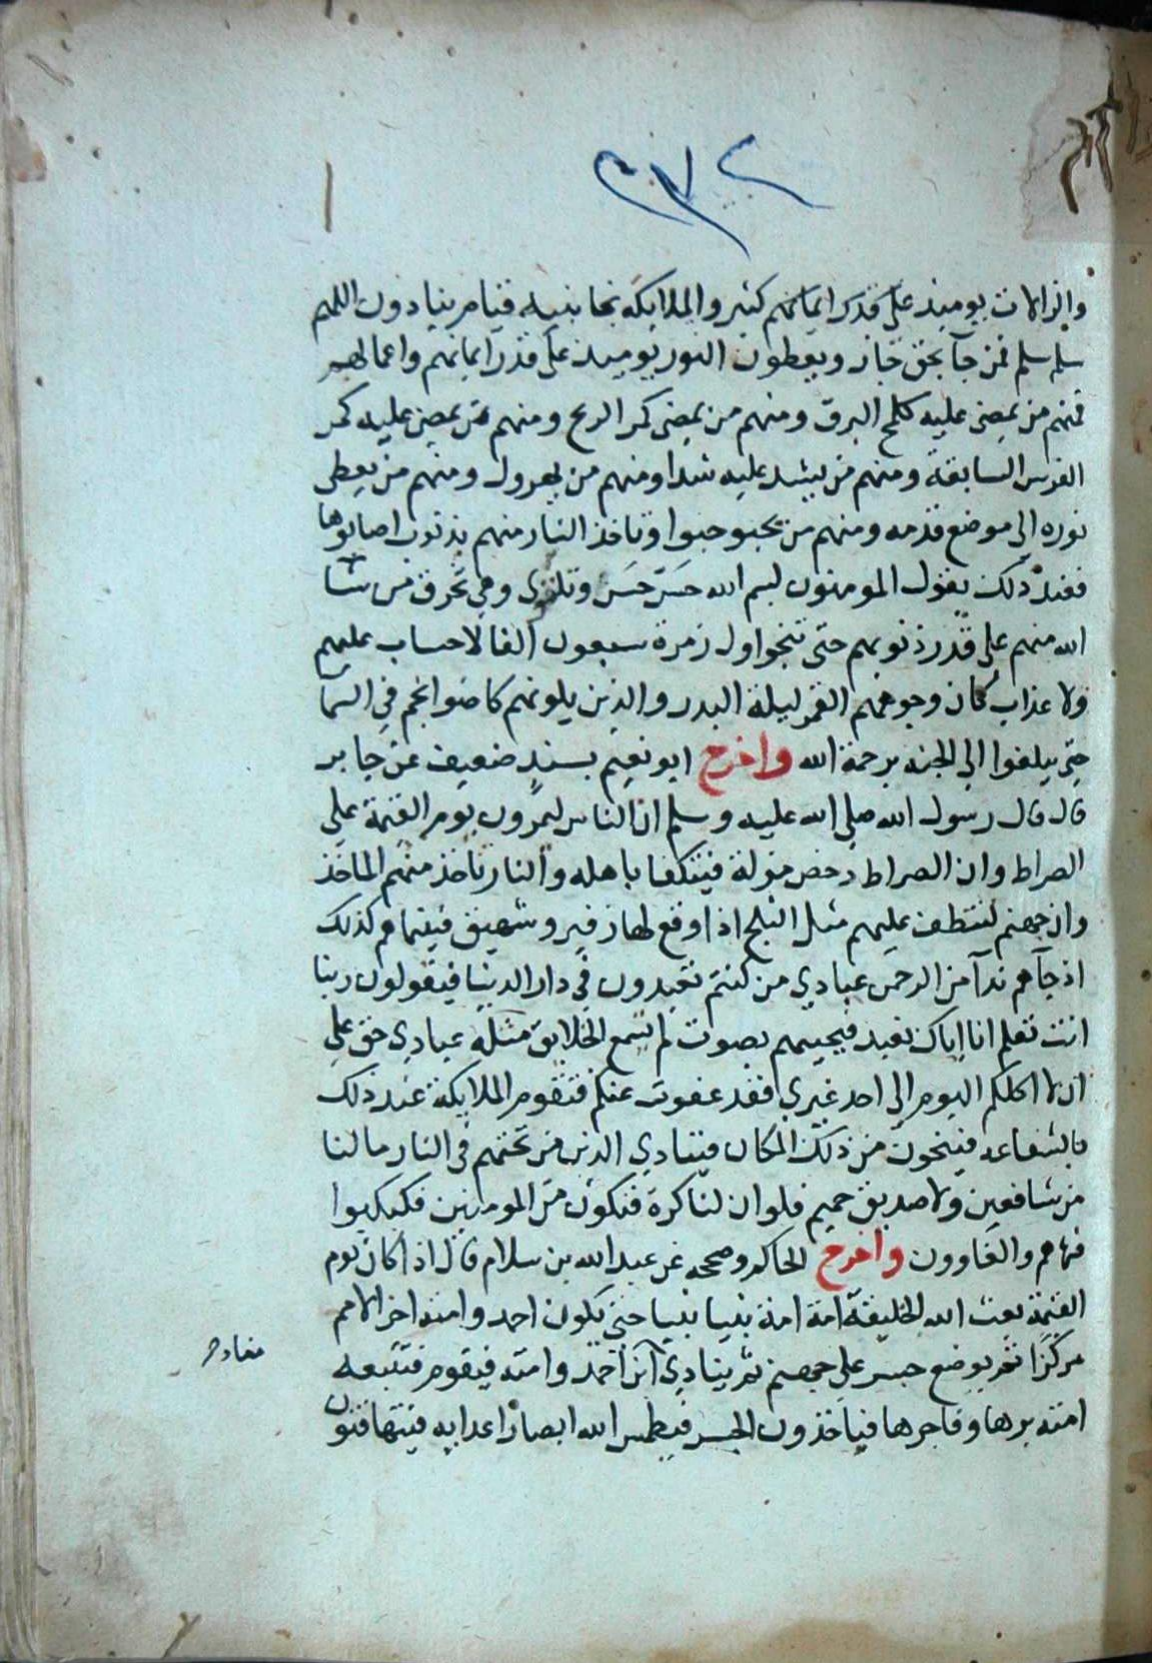 ٢٧٢
والزالات يوميذ على قدر ايمانهم كثير والملايكة بجانبيه قيام ينادون اللهم
سلم سلم فمن جآ بحق جاز ويعطون النور يوميذ على قدر ايمانهم واعمالهم
فمنهم من يمضى عليه كلمح البرق ومنهم من يمضى كمر الريح ومنهم من يمضى عليه كمر
الفرس السابقة ومنهم من يشد عليه شدا ومنهم من يهرول ومنهم من يعطى
نوره الى موضع قدمه ومنهم من يحبو حبوا وتاخذ النار منهم بذنوب اصابوها
فعند ذلك يقول المومنون بسم الله حس حس وتلتوى وهي تحرق من شا
الله منهم على قدر ذنوبهم حتى تنجوا اول زمرة سبعون الفا لاحساب عليهم
ولا عذاب كان وجوههم القمر ليلة البدر والذين يلونهم كاضوا نجم في السما
حتى يبلغوا الى الجنه برحمة الله واخرج ابو نعيم بسند ضعيف عن جابر
قال قال رسول الله صلى الله عليه وسلم ان الناس ليمرون يوم القيمة على
الصراط وان الصراط دحض مزلة فيتكفا باهله والنار تاخذ منهم الماخذ
وان جهنم لتنطف عليهم مثل الثلج اذا وقع لها زفير وشهيق فبينما هم كذلك
اذ جآهم ندآ من الرحمن عبادي من كنتم تعبدون في دار الدنيا فيقولون ربنا
انت تعلم انا اياك نعبد فيجيبهم بصوت لم تسمع الخلايق مثله عبادي حق على
ان لا اكلكم اليوم الى احد غيري فقد عفوت عنكم فتقوم الملايكة عند ذلك
بالشفاعه فينجون من ذلك المكان فينادي الذين من تحتهم في النار مالنا
من شافعين ولا صديق حميم فلو ان لنا كرة فنكون من المومنين فكبكبوا
فيها هم والغاوون واخرج الحاكم وصححه عن عبد الله بن سلام قال اذا كان يوم
القيمة بعث الله الخليقة امة امة نبيا نبيا حتى يكون احمد وامته اخر الامم
مركزا ثم يوضع جسر على جهنم ثم ينادي اين احمد وامته فيقوم فتتبعه
امته برها وفاجرها فياخذون الجسر فيطمس الله ابصار اعدايه فيتهافتون